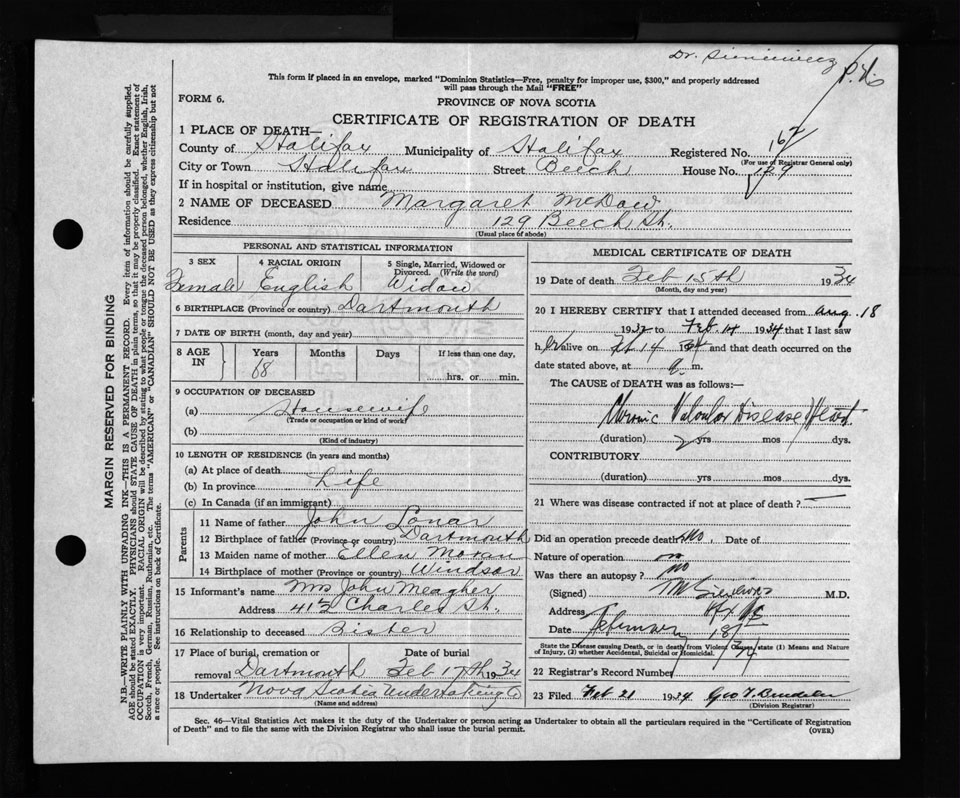 Dr.
This form if placed in an envelope, marked "Dominion Statistics—Free, penalty for improper use, $300," and properly addressed
will pass through the Mail "FREE"
FORM 6.
PROVINCE OF NOVA SCOTIA
CERTIFICATE OF REGISTRATION OF DEATH
1 PLACE OF DEATH—
County of Halifax Municipality of Halifax Registered No. 167
(For use of Registrar General only)
City or Town Halifax Street Beech House No. 129
If in hospital or institution, give name
2 NAME OF DECEASED Margaret McDow
Residence 129 Beech St.
(Usual place of abode)
PERSONAL AND STATISTICAL INFORMATION
3 SEX 4 RACIAL ORIGIN 5 Single, Married, Widowed or
Divorced. (Write the word)
Female English Widow
6 BIRTHPLACE (Province or country) Dartmouth
7 DATE OF BIRTH (month, day and year)
8 AGE IN Years Months Days If less than one day,
68 hrs. or min.
9 OCCUPATION OF DECEASED
(a) Housewife
(Trade or occupation or kind of work)
(b)
(Kind of industry)
10 LENGTH OF RESIDENCE (in years and months)
(a) At place of death
(b) In province Life
(c) In Canada (if an immigrant)
Parents
11 Name of father John Lonar
12 Birthplace of father (Province or country) Dartmouth
13 Maiden name of mother Ellen Moran
14 Birthplace of mother (Province or country) Windsor
15 Informant's name Mrs John Meagher
Address 41½ Charles St.
16 Relationship to deceased Sister
17 Place of burial, cremation or removal Date of burial
Dartmouth Feb 17th 1934
18 Undertaker Nova Scotia Undertaking Co
(Name and address)
MEDICAL CERTIFICATE OF DEATH
19 Date of death Feb 15th 1934
(Month, day and year)
20 I HEREBY CERTIFY that I attended deceased from Aug. 18
1932 to Feb. 14 1934 that I last saw
her alive on Feb 14 1934 and that death occurred on the
date stated above, at m.
The CAUSE of DEATH was as follows:
Chronic Valvular Disease Heart
(duration) 2 yrs mos dys.
CONTRIBUTORY
(duration) yrs mos dys.
21 Where was disease contracted if not at place of death?
Did an operation precede death? No. Date of
Nature of operation no
Was there an autopsy? no
(Signed) M.D.
Address Hfx NS
Date February 18th /34
State the Disease causing Death, or in death from Violent Causes, state (1) Means and Nature
of Injury, (2) whether Accidental, Suicidal or Homicidal.
22 Registrar's Record Number
23 Filed Feb 21 1934 Geo
(Division Registrar)
Sec. 46—Vital Statistics Act makes it the duty of the Undertaker or person acting as Undertaker to obtain all the particulars required in the "Certificate of Registration
of Death" and to file the same with the Division Registrar who shall issue the burial permit. (OVER)
MARGIN RESERVED FOR BINDING
N.B.—WRITE PLAINLY WITH UNFADING INK—THIS IS A PERMANENT RECORD. Every item of information should be carefully supplied.
AGE should be stated EXACTLY. PHYSICIANS should STATE CAUSE OF DEATH in plain terms, so that it may be properly classified. Exact statement of
OCCUPATION is very important. RACIAL ORIGIN will be described by stating to what people or tongue the deceased person belonged, whether English, Irish,
Scotch, French, German, Russian, Ruthenian, etc. The terms "AMERICAN" or "CANADIAN" SHOULD NOT BE USED as they express citizenship but not
a race or people. See instructions on back of Certificate.